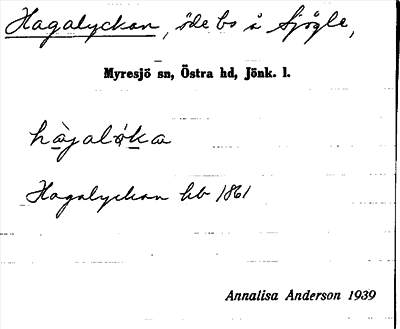 Hagalyckan, öde bo å Sjögle,
Myresjö sn, Östra hd, Jönk. l.
Hagalyckan hb 1861
Annalisa Anderson 1939